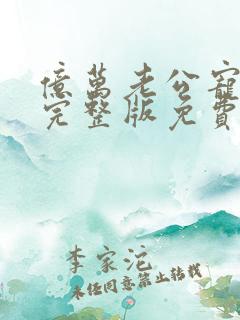 億萬老公寵
完整版免費
李家沱
未經同意禁止转载